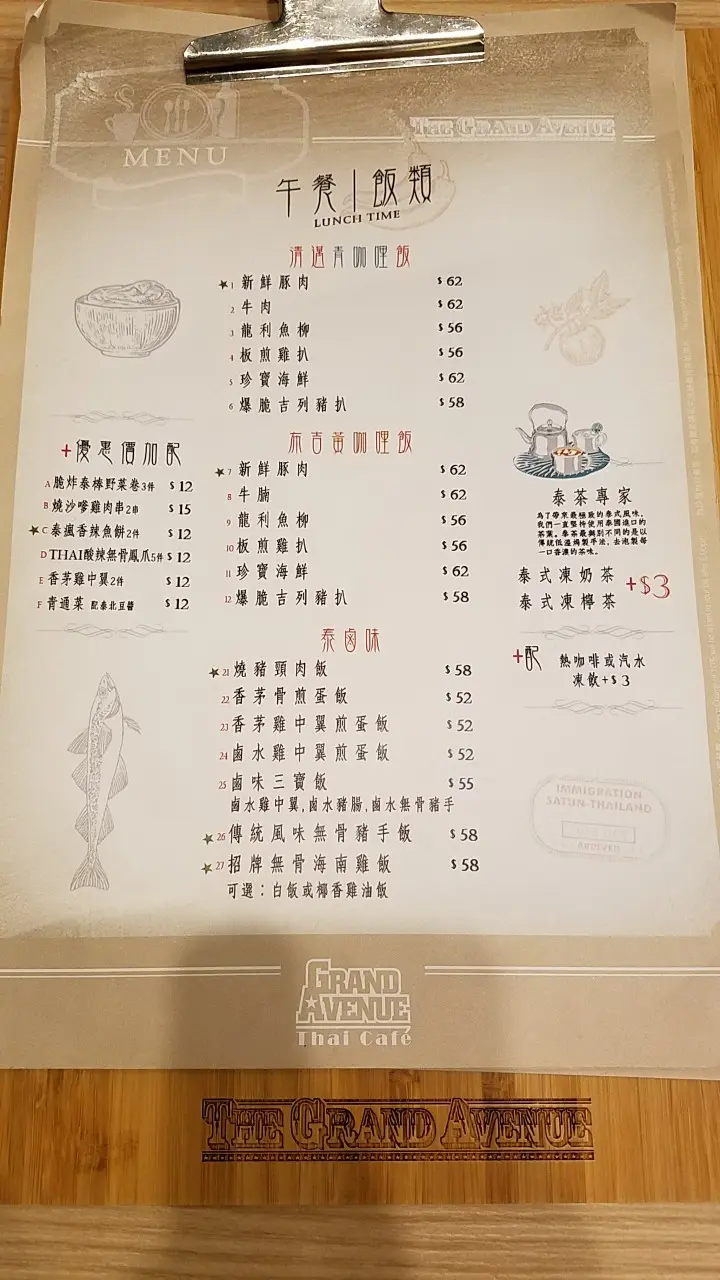 MENU
THE GRAND AVENUE
午餐|飯類
LUNCH TIME
清邁青咖哩飯
★1 新鮮豚肉 $62
2 牛肉 $62
3 龍利魚柳 $56
4 板煎雞扒 $56
5 珍寶海鮮 $62
6 爆脆吉列豬扒 $58
布吉黃咖哩飯
★7 新鮮豚肉 $62
8 牛腩 $62
9 龍利魚柳 $56
10 板煎雞扒 $56
11 珍寶海鮮 $62
12 爆脆吉列豬扒 $58
泰鹵味
★21 燒豬頸肉飯 $58
22 香茅骨煎蛋飯 $52
23 香茅雞中翼煎蛋飯 $52
24 鹵水雞中翼煎蛋飯 $52
25 鹵味三寶飯 $55
鹵水雞中翼,鹵水豬腸,鹵水無骨豬手
★26 傳統風味無骨豬手飯 $58
★27 招牌無骨海南雞飯 $58
可選：白飯或椰香雞油飯
+優惠價加配
A 脆炸泰棒野菜卷3件 $12
B 燒沙嗲雞肉串2串 $15
★C 泰瘋香辣魚餅2件 $12
D THAI酸辣無骨鳳爪5件 $12
E 香茅雞中翼2件 $12
F 青通菜 配泰北豆醬 $12
泰茶專家
為了帶來最極致的泰式風味,
我們一直堅持使用泰國進口的
茶葉。泰茶最與別不同的是以
傳統低溫焗製手法,去泡製每
一口香濃的茶味。
泰式凍奶茶
泰式凍檸茶
+$3
+配 熱咖啡或汽水
凍飲+$3
IMMIGRATION
SATUN-THAILAND
GRAND
AVENUE
Thai Café
THE GRAND AVENUE